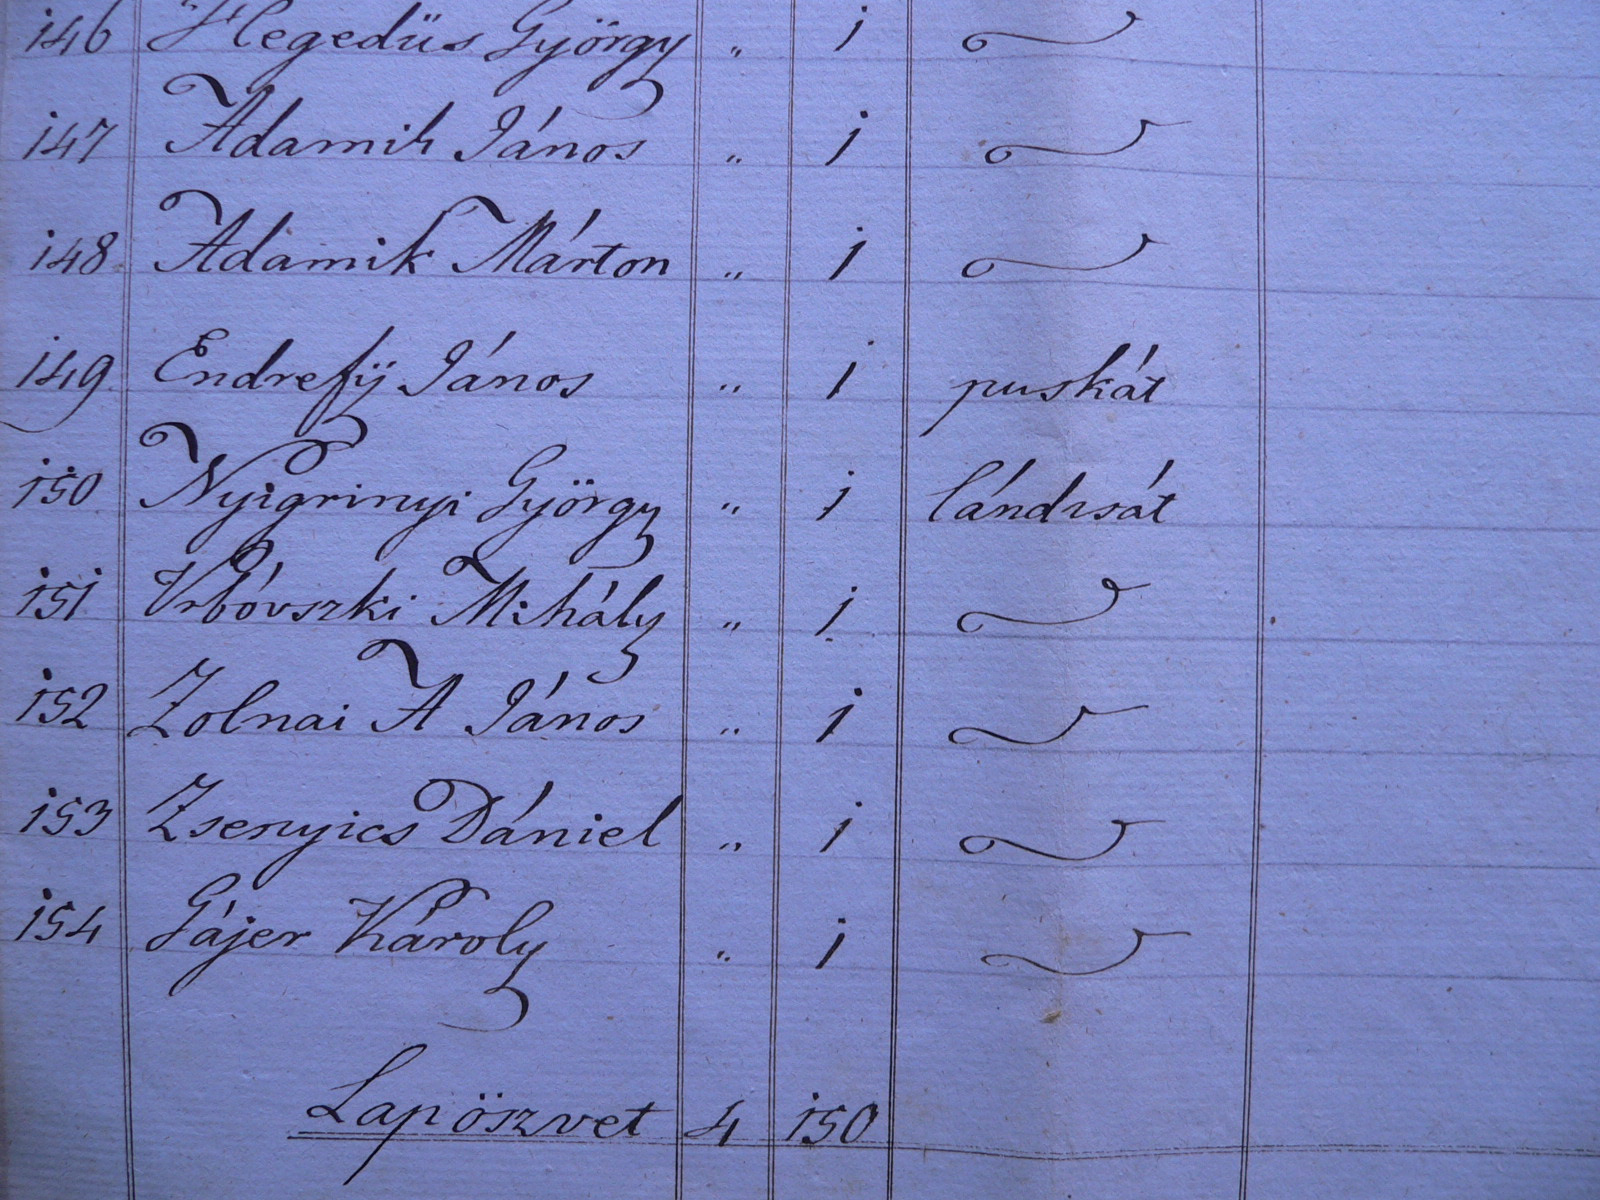 146 Hegedüs György „ 1
147 Adamik János „ 1
148 Adamik Márton „ 1
149 Endrefÿ János „ 1 puskát
150 Nyigrinyi György „ 1 lándsát
151 Vrbóvszki Mihály „ 1
152 Zolnai A János „ 1
153 Zsenyics Dániel „ 1
154 Gájer Károly „ 1
Lapöszvet 4 150